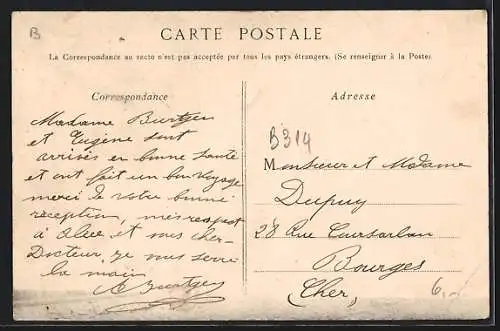 B
CARTE POSTALE
La Correspondance au recto n'est pas acceptée par tous les pays étrangers. (Se renseigner à la Poste)
Correspondance
Madame Burtger
et Eugène sont
arrivés en bonne santé
et ont fait un bon voyage
merci de votre bonne
réception, mes respect
à Alice et mes cher
Docteur, je vous serre
la main
Adresse
B314
Monsieur et Madame
Dupuy
28 Rue
Bourges
Cher,
6,-